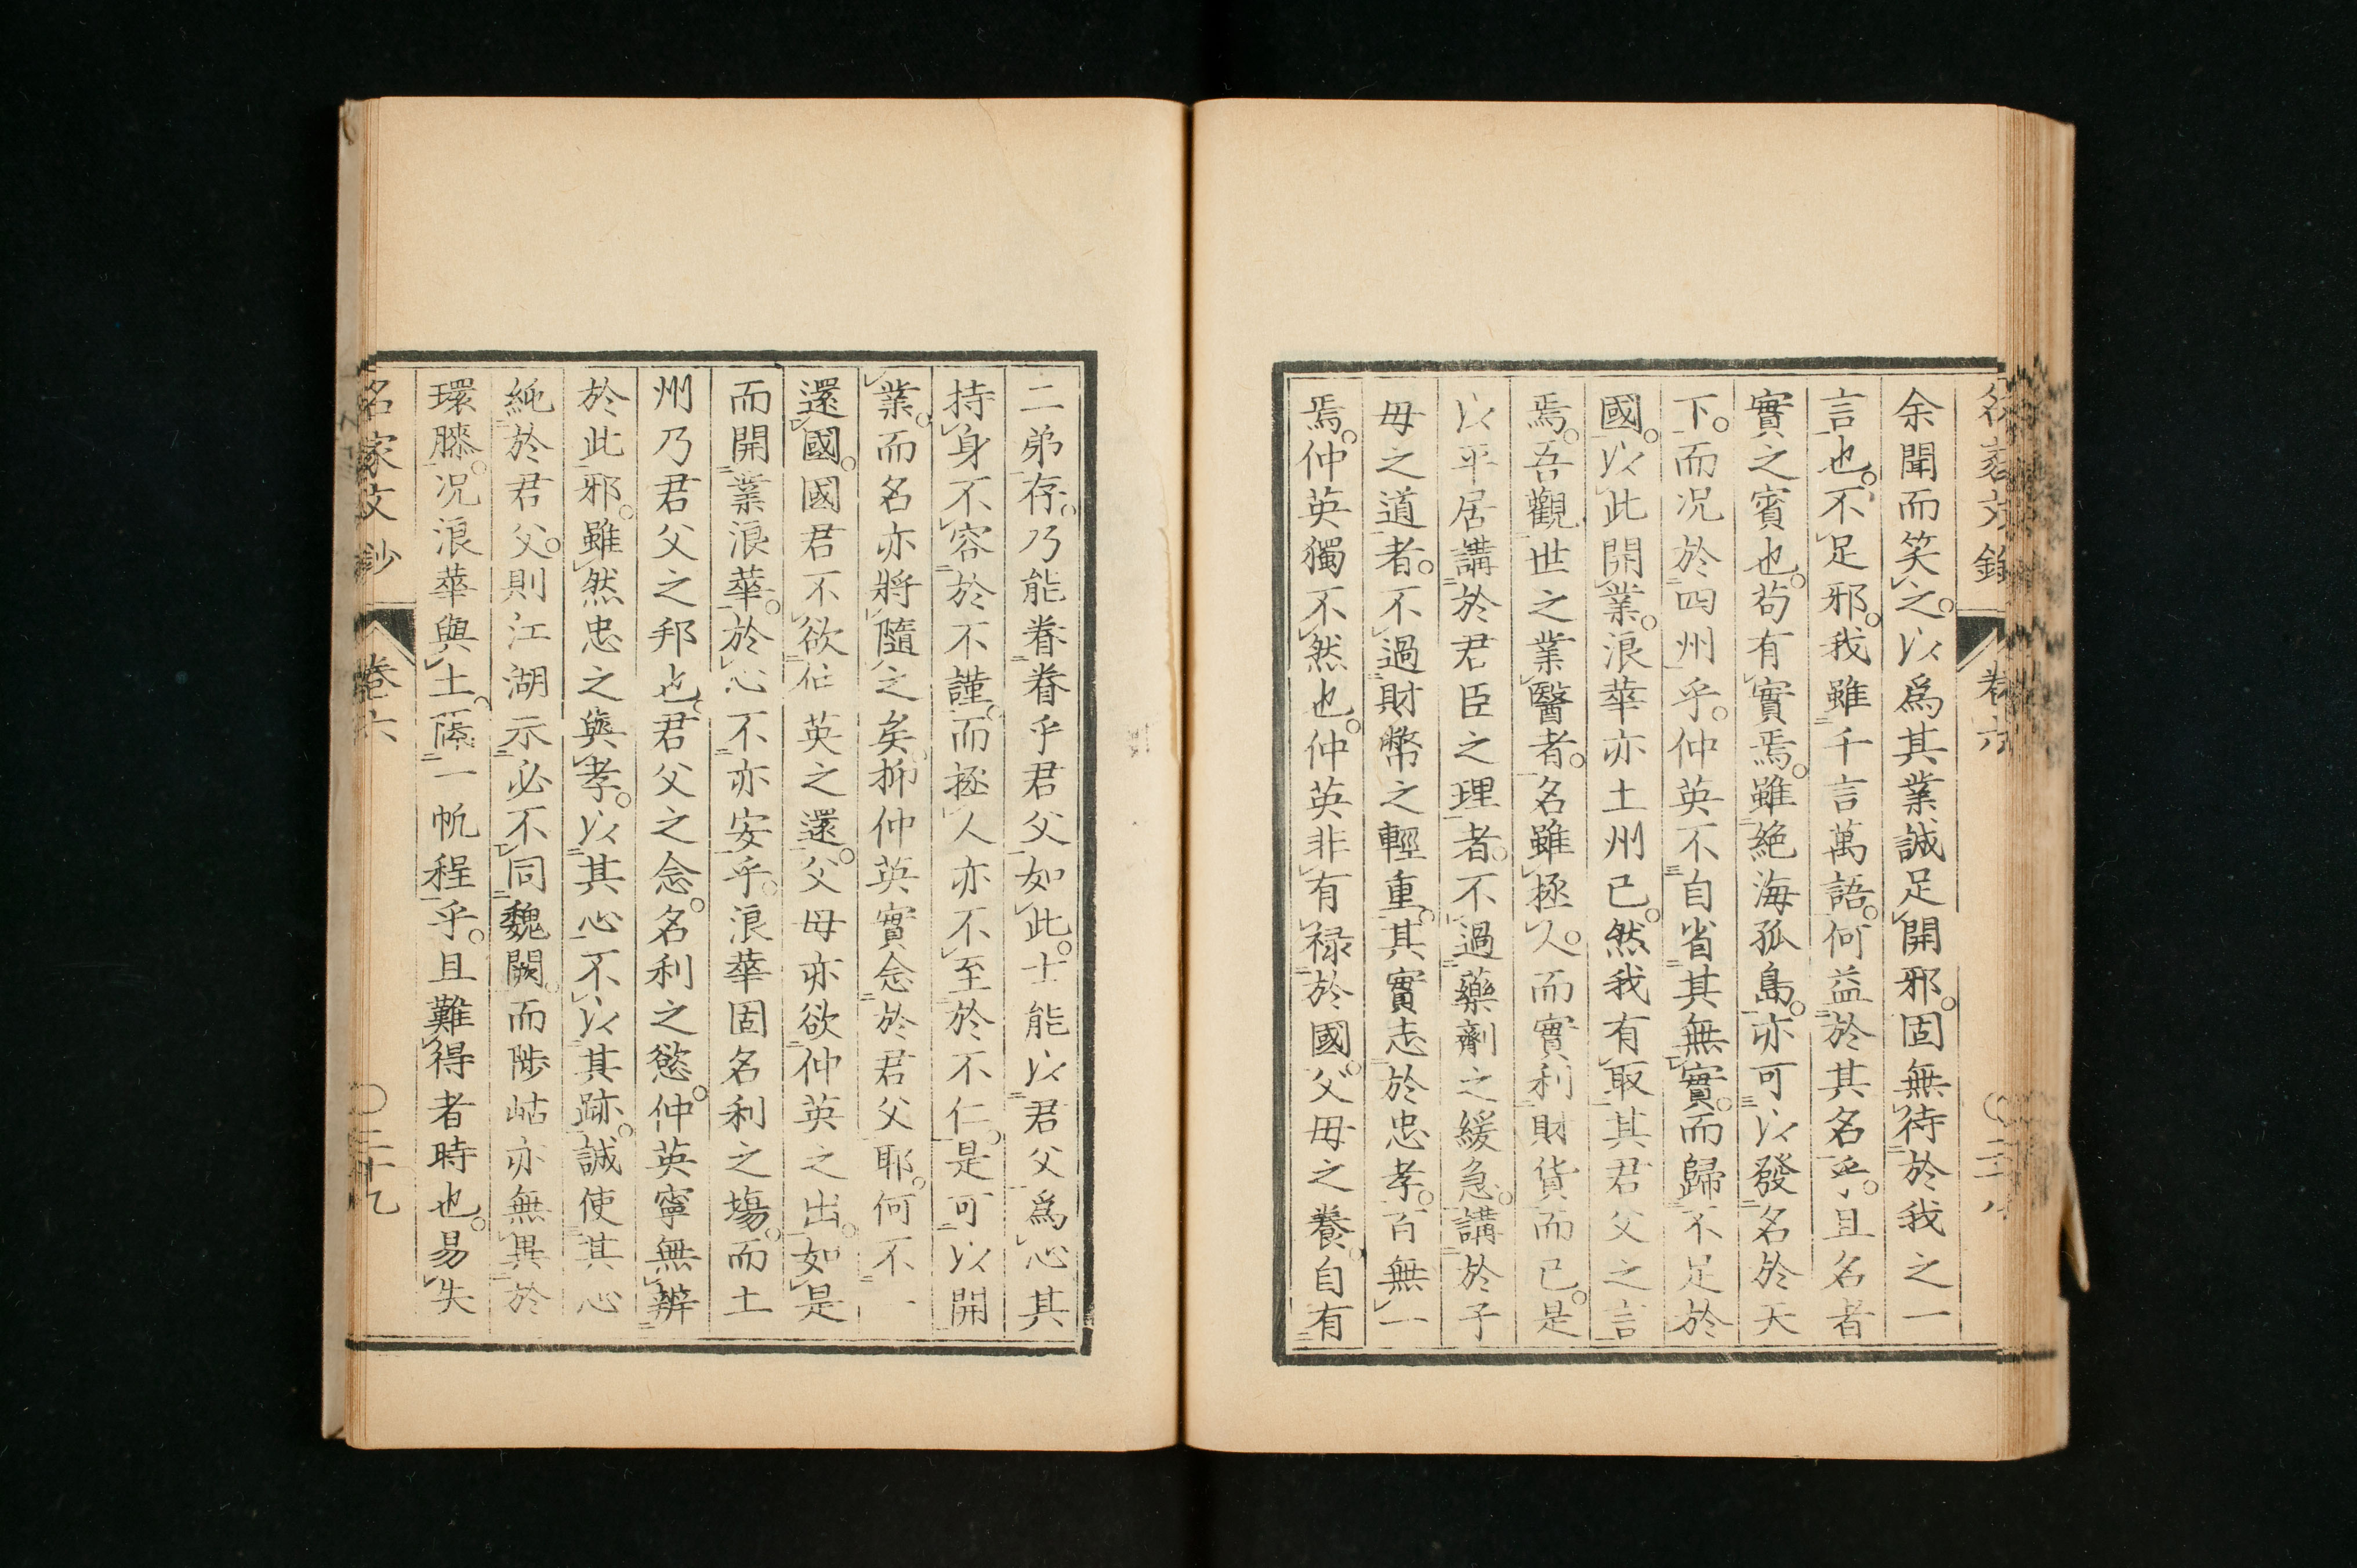 余聞而笑之。以爲其業誠足開邪。固無待於我之一
言也。不足邪。我雖千言萬語。何益於其名乎。且名者
實之賓也。苟有實焉。雖絶海孤島。亦可以發名於天
下。而况於四州乎。仲英不自省其無實。而歸不足於
國。以此開業。浪華亦土州已。然我有取其君父之言
焉。吾觀世之業醫者。名雖拯人。而實利財貨而已。是
以平居講於君臣之理者。不過藥劑之緩急。講於子
母之道者。不過財幣之輕重。其實志於忠孝。百無一
焉。仲英獨不然也。仲英非有祿於國。父母之養。自有
二弟存。乃能眷眷乎君父如此。士能以君父爲心。其
持身不容於不謹。而拯人亦不至於不仁。是可以開
業。而名亦將隨之矣。抑仲英實念於君父耶。何不一
還國。國君不欲仲英之還。父母亦欲仲英之出。如是
而開業浪華。於心不亦安乎。浪華固名利之塲。而土
州乃君父之邦也。君父之念。名利之慾。仲英寧無辨
於此邪。雖然忠之與孝。以其心不以其跡。誠使其心
純於君父。則江湖示必不同魏闕。而陟岵亦無異於
環膝。况浪華與土。隔一帆程乎。且難得者時也。易失
名家文鈔 卷六 〇二十九